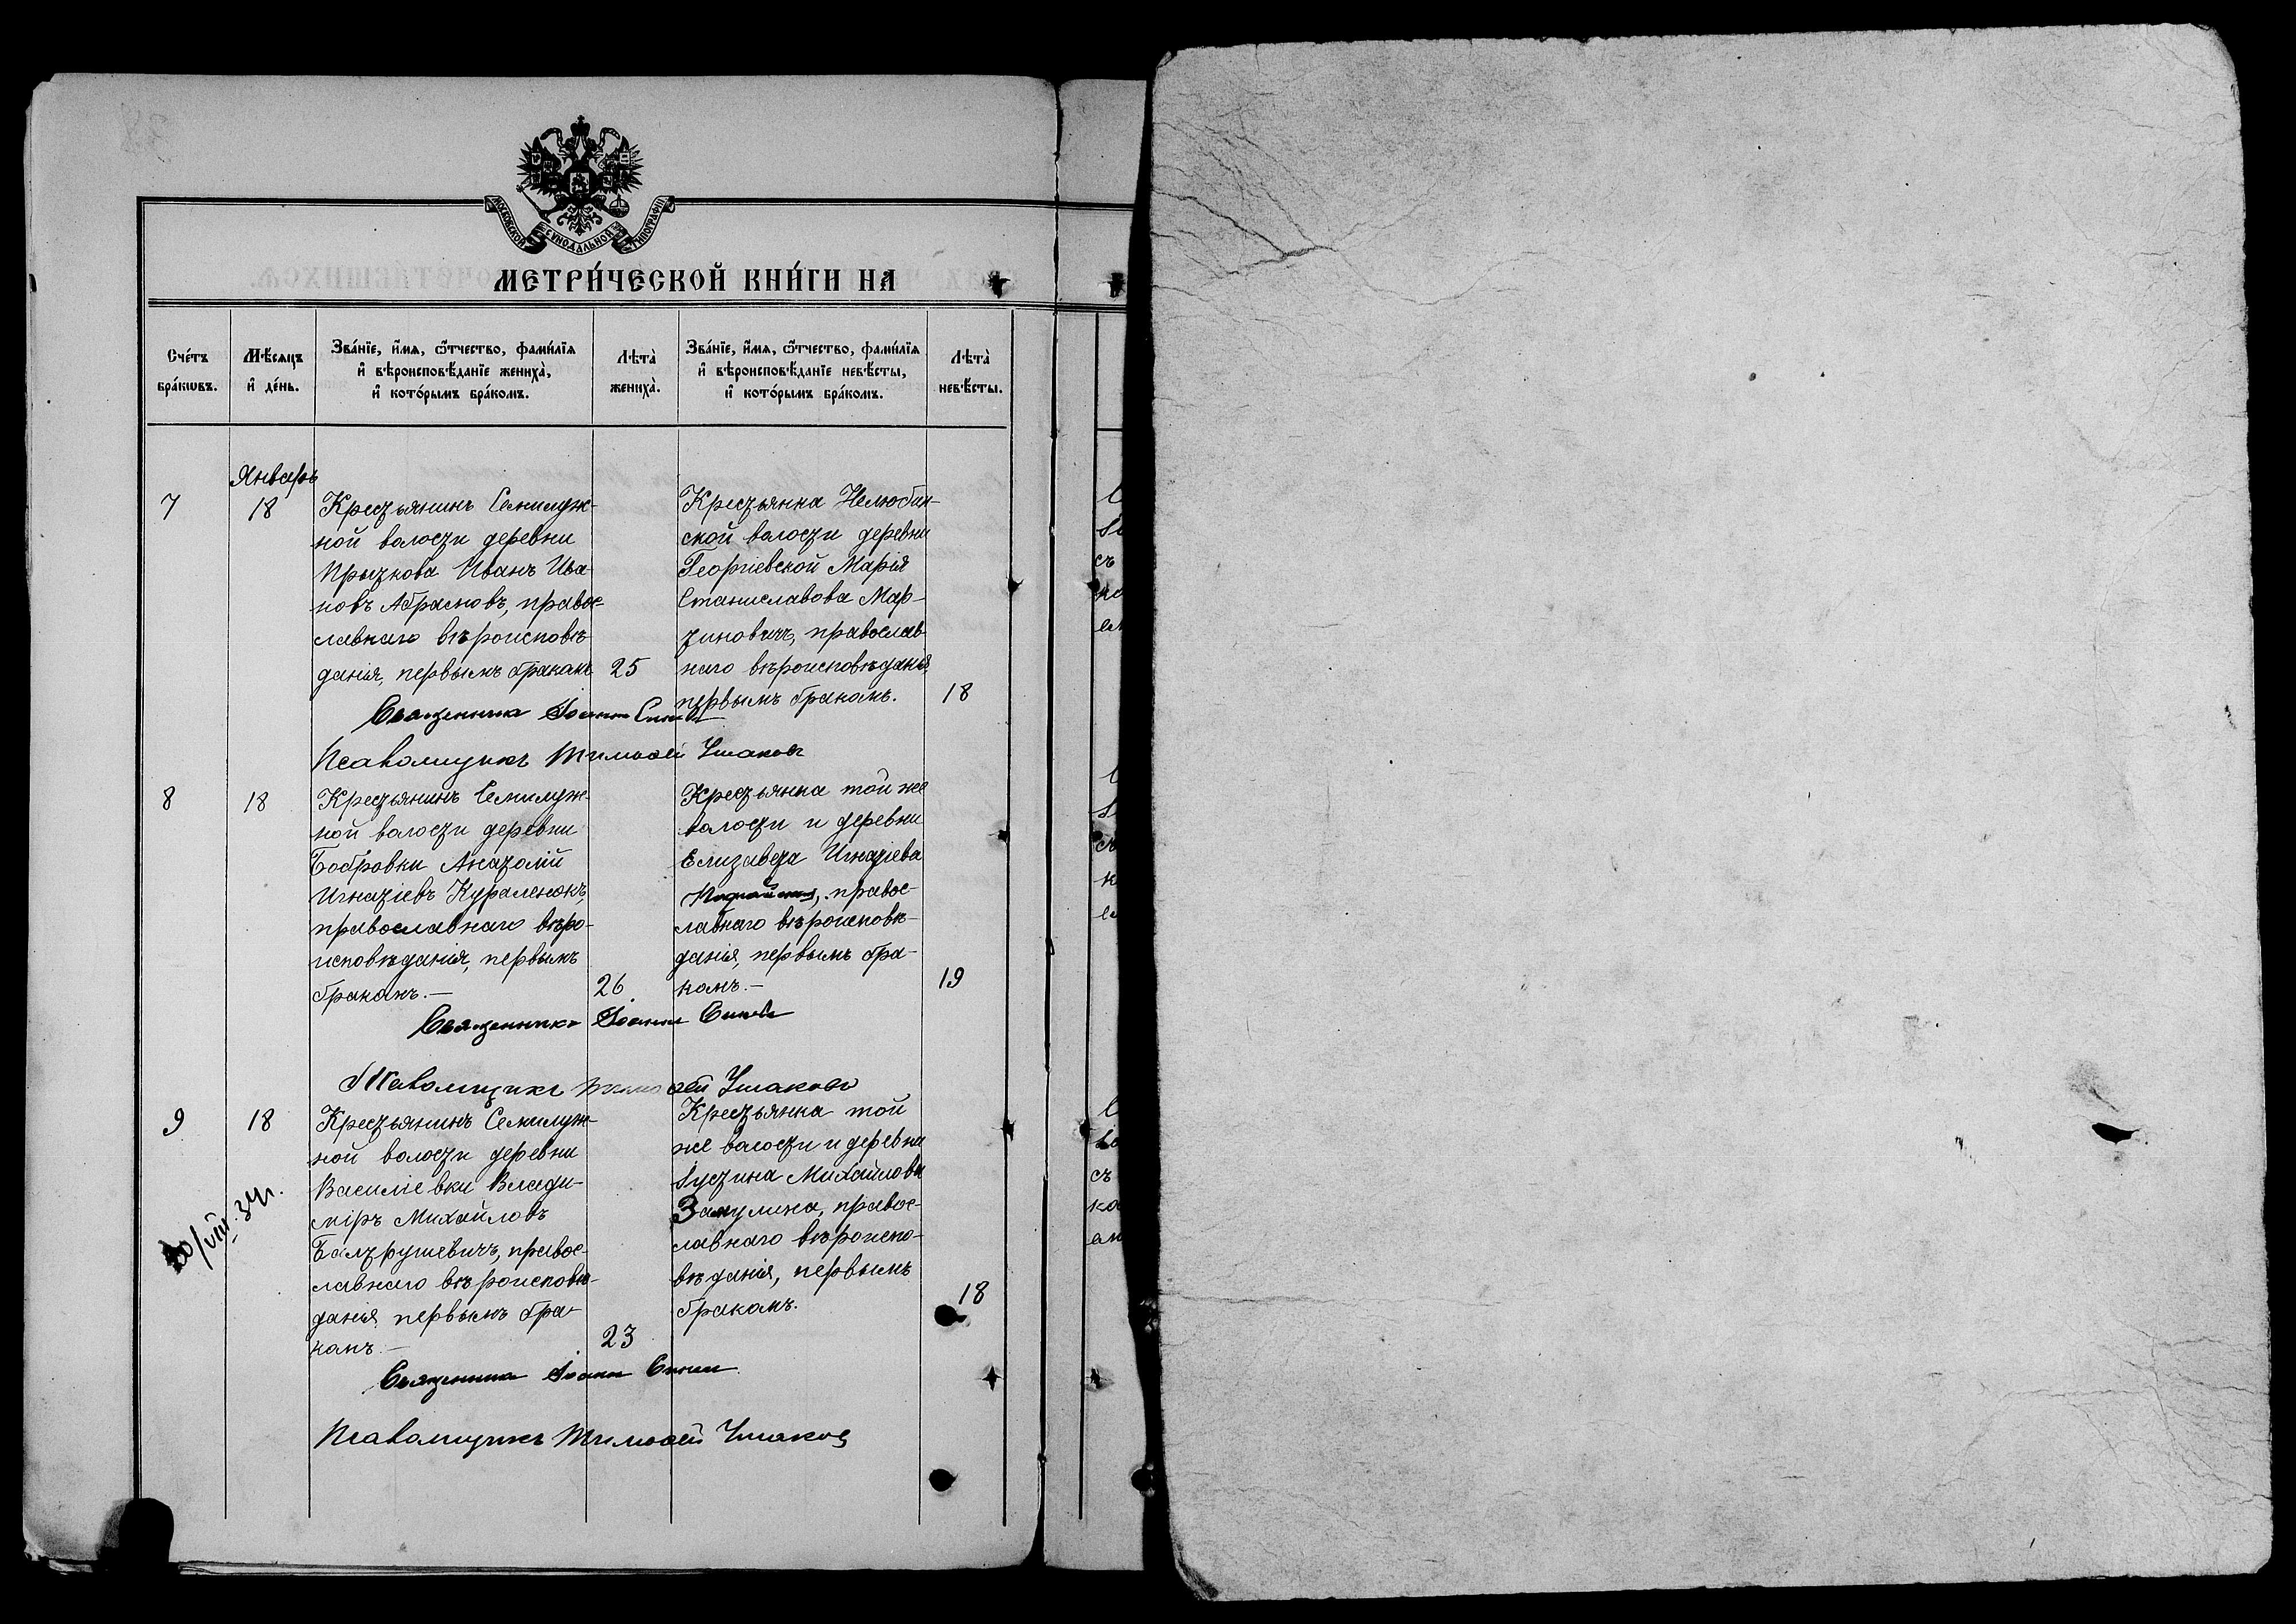 МОСКОВСКОЙ СѴНОДАЛЬНОЙ ТИПОГРАФІИ
МЕТРИ́ЧЕСКОЙ КНИ́ГИ НА
Сче́тъ бра́кωвъ.
Мѣ́сяцъ и҆ де́нь.
Зва́нїе, и҆́мѧ, ѻ҆́тчество, фами́лїѧ
и҆ вѣроисповѣ́данїе жениха̀,
и҆ кото́рымъ бра́комъ.
Лѣта̀ жениха̀.
Зва́нїе, и҆́мѧ, ѻ҆́тчество, фами́лїѧ
и҆ вѣроисповѣ́данїе невѣ́сты,
и҆ кото́рымъ бра́комъ.
Лѣта̀ невѣ́сты.
Январь
7
18
Крестьянинъ Семилуж-
ной волости деревни
Прыткова Иванъ Ива-
новъ Абрамовъ, правос-
лавнаго вѣроисповѣ-
данія, первымъ бракомъ
25
Крестьянка Нелюбин-
ской волости деревни
Георгіевской Марія
Станиславова Мар-
тиновичъ, православ-
наго вѣроисповѣданія,
первымъ бракомъ.
18
Священникъ Іоаннъ
Псаломщикъ Тимоѳей Ушаковъ
8
18
Крестьянинъ Семилуж-
ной волости деревни
Бобровки Анатолій
Игнатіевъ Кураленокъ,
православнаго вѣро-
исповѣданія, первымъ
бракомъ.—
26
Крестьянка той же
волости и деревни
Елизавета Игнатіева
правос-
лавнаго вѣроисповѣ-
данія, первымъ бра-
комъ.—
19
Священникъ Іоаннъ
Псаломщикъ Тимоѳей Ушаковъ
9
18
Крестьянинъ Семилуж-
ной волости деревни
Василіевки Влади-
міръ Михайловъ
Балтрушевичъ, правос-
лавнаго вѣроисповѣ-
данія первымъ бра-
комъ.—
23
Крестьянка той
же волости и деревни
Іустина Михайлова
правос-
лавнаго вѣроиспо-
вѣданія, первымъ
бракомъ.
18
/VIII-34г.
Священникъ Іоаннъ
Псаломщикъ Тимоѳей Ушаковъ